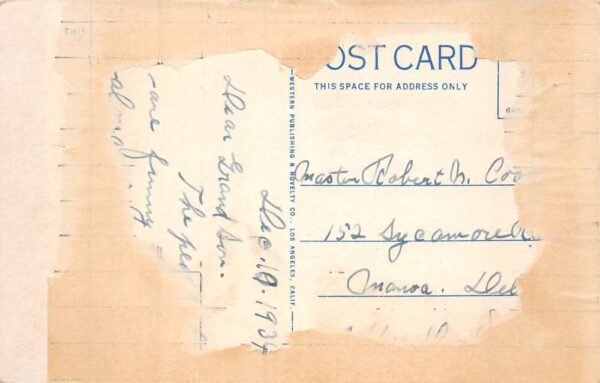 THIS
POST CARD
THIS SPACE FOR ADDRESS ONLY
WESTERN PUBLISHING & NOVELTY CO., LOS ANGELES, CALIF.
Dec. 19. 1934
Dear Grand Son.
The
are funny
Master Robert N.
152 Sycamore
Manoa. Del